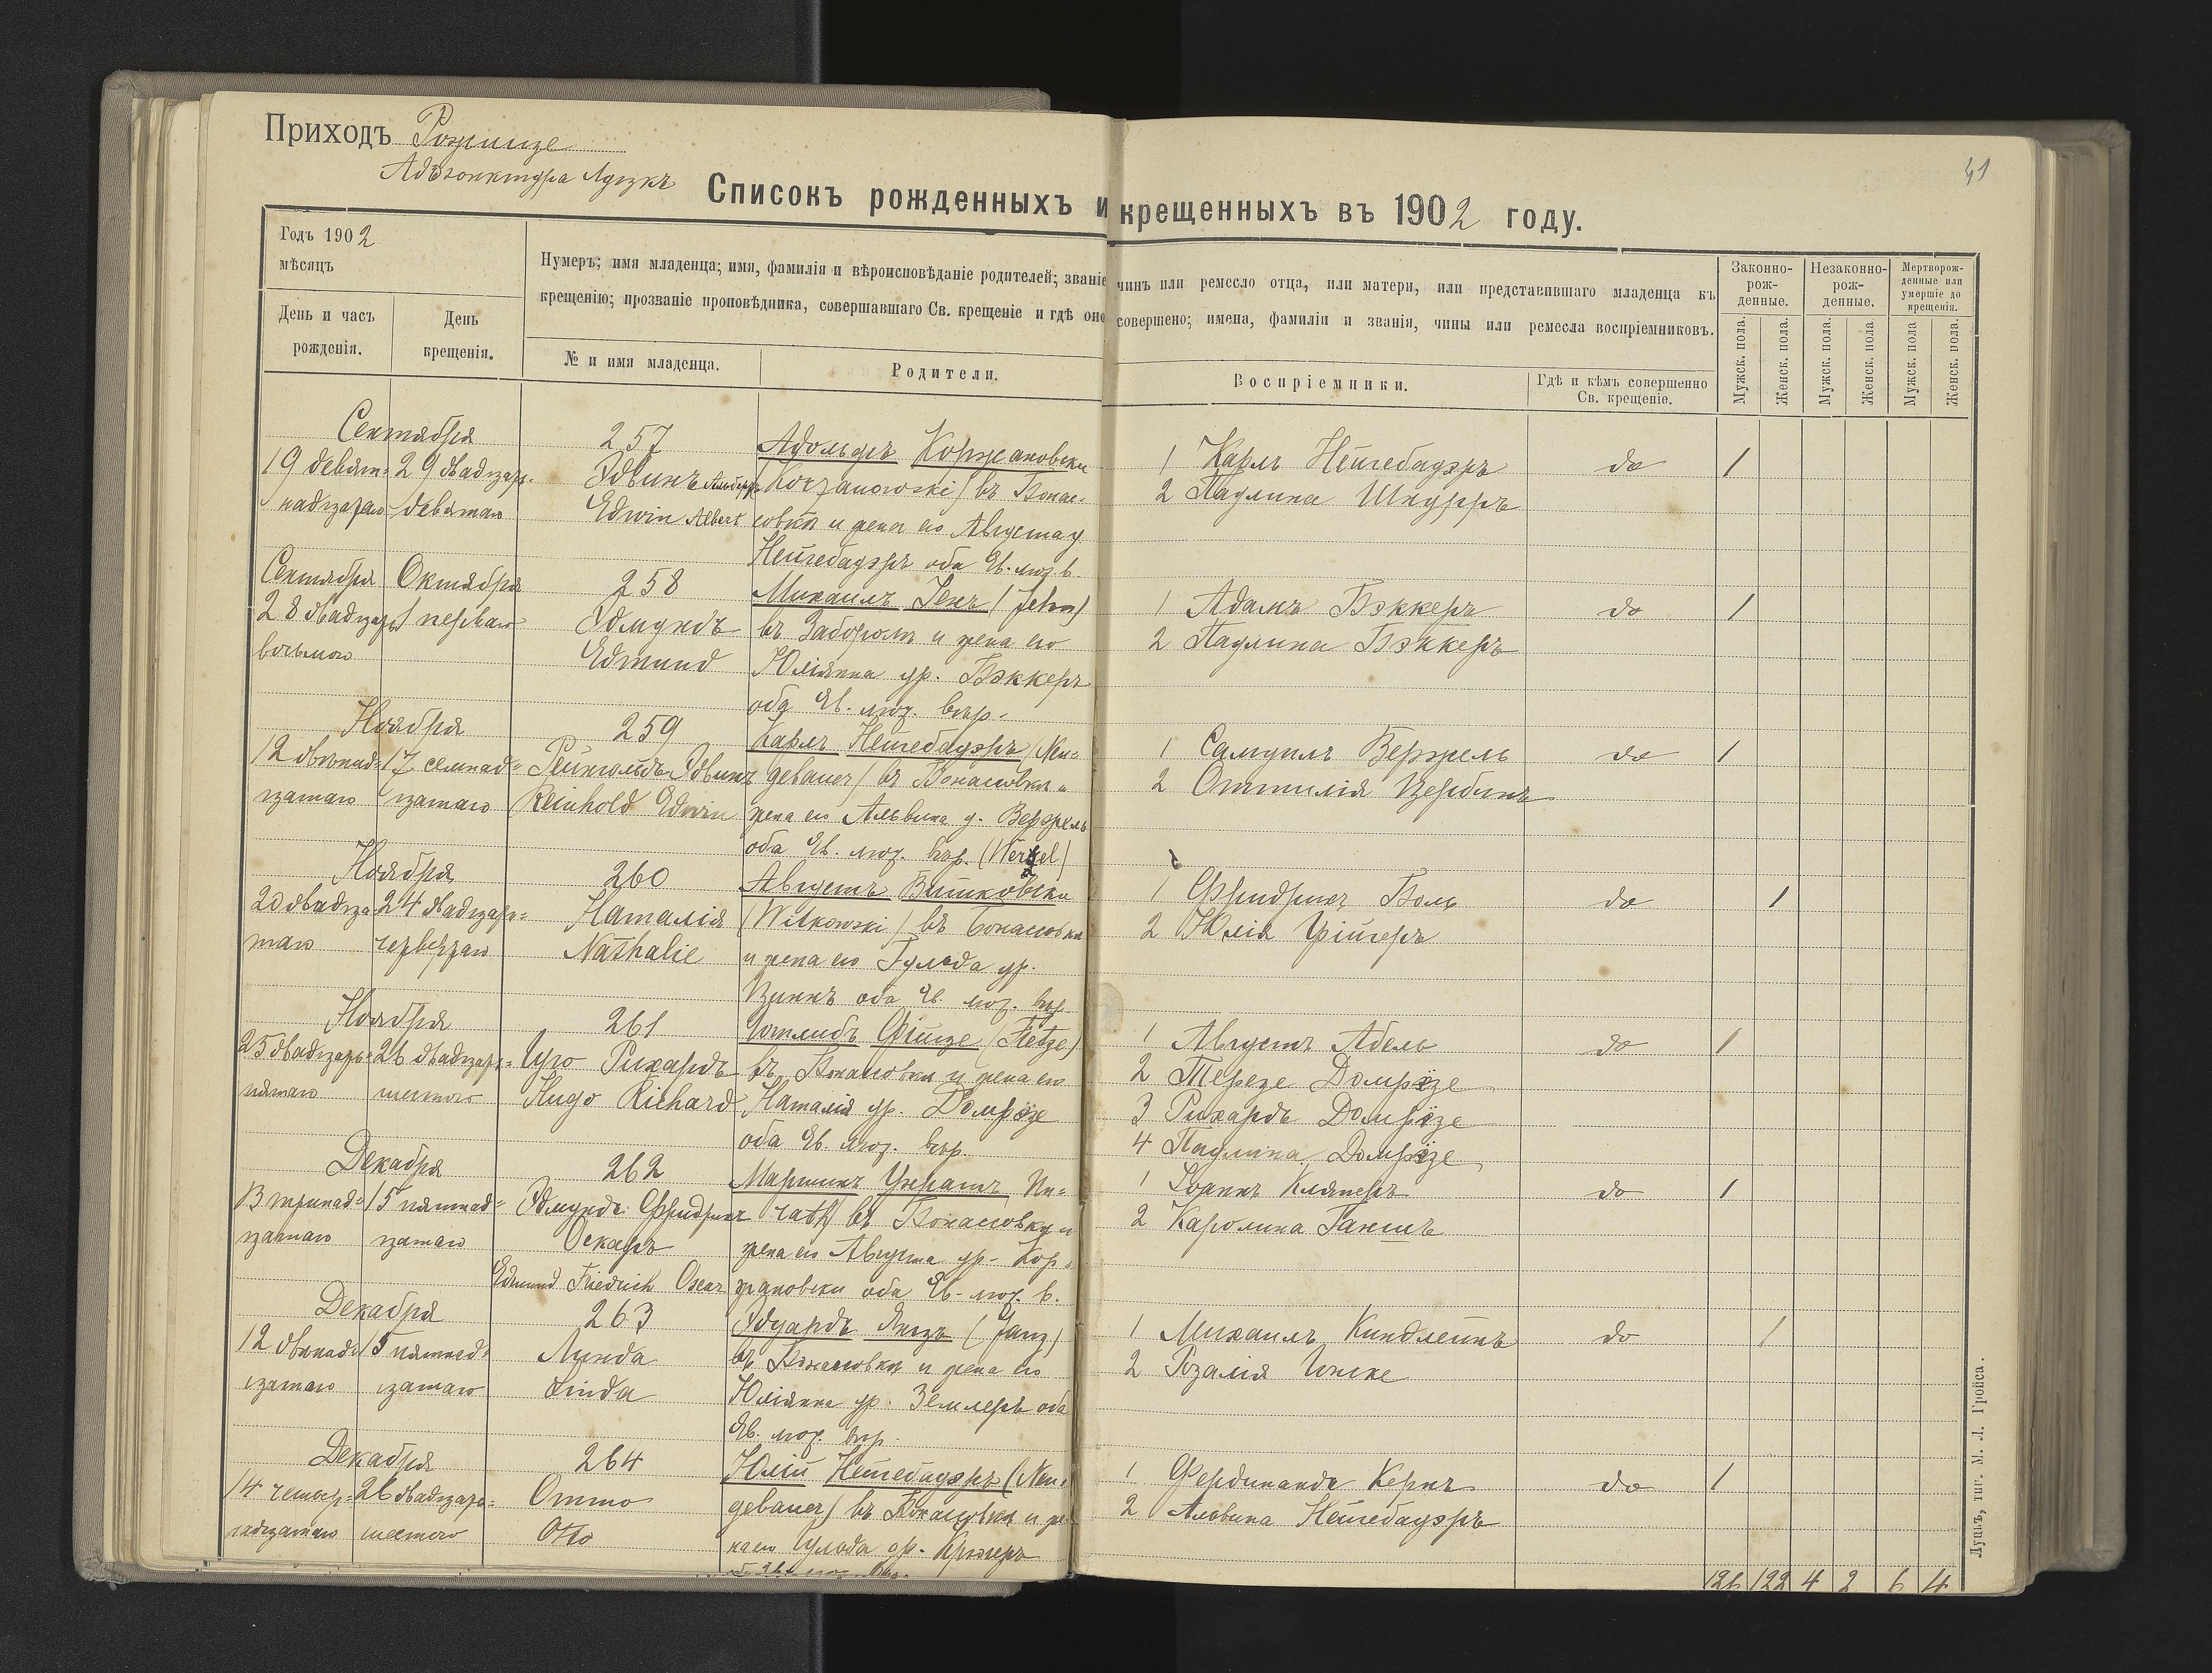 Приходъ Рожище
Адъюнктура Луцкъ
41
Списокъ рожденныхъ и крещенныхъ въ 1902 году.
Годъ 1902
мѣсяцъ
День и часъ рожденія.
День крещенія.
Нумеръ; имя младенца; имя, фамилія и вѣроисповѣданіе родителей; званіе чинъ или ремесло отца, или матери, или представившаго младенца къ
крещенію; прозваніе проповѣдника, совершавшаго Св. крещеніе и гдѣ оно совершено; имена, фамиліи и званія, чины или ремесла воспріемниковъ.
№ и имя младенца.
Родители.
Воспріемники.
Гдѣ и кѣмъ совершенно
Св. крещеніе.
Законно-рож-денные.
Незаконно-рож-денные.
Мертворож-денные или умершіе до крещенія.
Мужск. пола.
Женск. пола.
Мужск. пола
Женск. пола
Мужск. пола
Женск. пола.
Сентября
19 девят-
надцатаго
29 двадцать
девятаго
257
Эдвинъ Альбертъ
Edwin Albert
Адольфъ Коржановски
(Korzanowski) въ Бонас-
совкѣ и жена его Августа у.
Нейгебауэръ оба Ев. лют в.
1 Карлъ Нейгебауэръ
2 Паулина Шнурръ
do
1
Сентября
28 двадцать
восьмого
Октября
1 перваго
258
Эдмундъ
Edmund
Михаилъ Іенъ (Jehn)
въ Заборолѣ и жена его
Юліянна ур. Бэккеръ
оба Ев. лют. вѣр.
1 Адамъ Бэккеръ
2 Паулина Бэккеръ
do
1
Ноября
12 двѣнад-
цатаго
17 семнад-
цатаго
259
Рейнгольдъ Эдвинъ
Reinhold Edwin
Карлъ Нейгебауэръ (Neu-
gebauer) въ Бонасовкѣ и
жена его Альвина у. Вержель
оба Ев. лют. вѣр. (Werzel)
1 Самуилъ Вержель
2 Оттилія Цербинъ
do
1
Ноября
20 двадца-
таго
24 двадцать
260
Наталія
Nathalie
Августъ Витковски
(Witkowski) въ Бонасовкѣ
и жена его Гульда ур.
Цинкъ оба Ев. лют. вѣр.
1 Фридрихъ Боль
2 Юлія
do
1
Ноября
25 двадцать
пятаго
26 двадцать
шестого
261
Гуго Рихардъ
Hugo Richard
Готлибъ Фітце (Fietze)
въ Бонасовкѣ и жена его
Наталія ур. Домрёзе
оба Ев. лют. вѣр.
1 Августъ Абель
2 Терезе Домрёзе
3 Рихардъ Домрёзе
4 Паулина Домрёзе
do
1
Декабря
13 тринад-
цатаго
15 пятнад-
цатаго
262
Эдмундъ Фридрихъ
Оскаръ
Edmund Friedrich Oscar
Мартинъ
въ Бонасовкѣ и
жена его Августа ур. Кор-
жановски оба Ев. лют. в.
1 Іоганнъ
2 Каролина
do
1
Декабря
12 двѣнад-
цатаго
15 пятнад-
цатаго
263
Линда
Linda
Эдуардъ Янцъ (Janz)
въ Бонасовкѣ и жена его
Юліянна ур. Землеръ оба
Ев. лют. вѣр.
1 Михаилъ Киндлейнъ
2 Розалія
do
1
Декабря
14 четыр-
надцатаго
26 двадцать
шестого
264
Отто
Otto
Юлій Нейгебауэръ (Neu-
gebauer) въ Бонасовкѣ и же-
на его Гульда ур. Крюгеръ
1 Фердинандъ Кернъ
2 Альвина Нейгебауэръ
do
1
126 122 4 2 6 4
Луцкъ, тип. М. Л. Гройса.